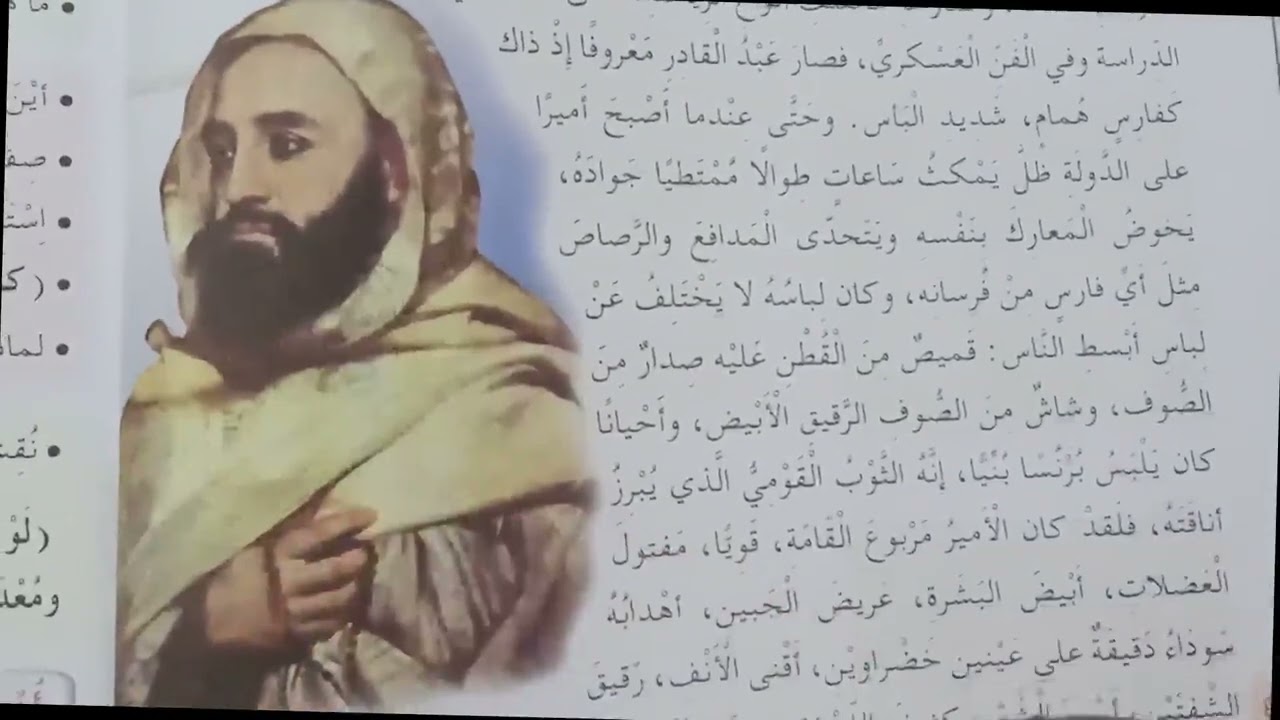 الدِّراسة وفي الْفَنِّ الْعَسْكريِّ، فصارَ عَبْدُ الْقادرِ مَعْروفًا إذْ ذاكَ
كَفارِسٍ هُمامٍ، شَديدِ الْبَاسِ. وحَتَّى عِنْدما أَصْبَحَ أَميرًا
على الدَّولَةِ ظَلَّ يَمْكثُ سَاعاتٍ طِوالًا مُمْتَطيًا جَوادَهُ،
يَخوضُ الْمَعاركَ بنَفْسهِ ويَتَحدَّى الْمَدافِعَ والرَّصاصَ
مِثلَ أيِّ فارسٍ مِنْ فُرسانهِ، وكان لباسُهُ لا يَخْتَلِفُ عَنْ
لباسِ أبْسطِ النَّاس: قَميصٌ مِنَ الْقُطْنِ عَليْه صِدارٌ مِنَ
الصُّوف، وشاشٌ منَ الصُّوف الرَّقيقِ الْأَبْيضِ، وأَحْيانًا
كان يَلْبَسُ بُرْنُسًا بُنِّيًا، إنَّهُ الثَّوْبُ الْقَوْمِيُّ الَّذي يُبْرِزُ
أناقَتَهُ، فلَقدْ كان الْأَميرُ مَرْبوعَ الْقَامَةِ، قَويًّا، مَفتولَ
الْعَضلات، أبْيضَ البَشَرةِ، عَريضَ الْجَبين، أهْدابُهُ
سَوداءُ دَقيقَةٌ على عَيْنين خَضْراويْن، أقْنى الْأَنْف، رَقيقَ
الشَّفتَيْن،
أيْنَ
(لَوْ